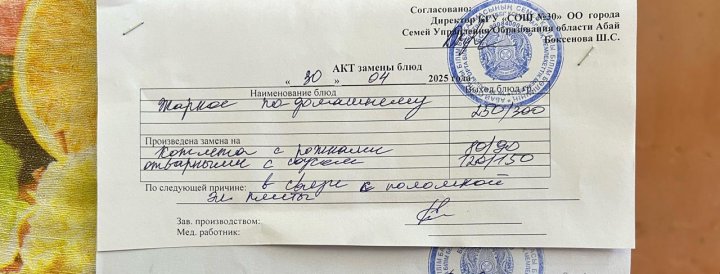 Согласовано:
Директор КГУ «СОШ №30» ОО города
Семей Управления Образования области Абай
Боксенова Ш.С.
АКТ замены блюд
« 30 » 04 2025 года
Наименование блюд Выход блюд гр.
Жаркое по-домашнему 250/300
Произведена замена на
Котлета с рожками 80/90
отварными с соусом 120/150
По следующей причине: в связи с поломкой
эл плиты
Зав. производством:
Мед. работник: